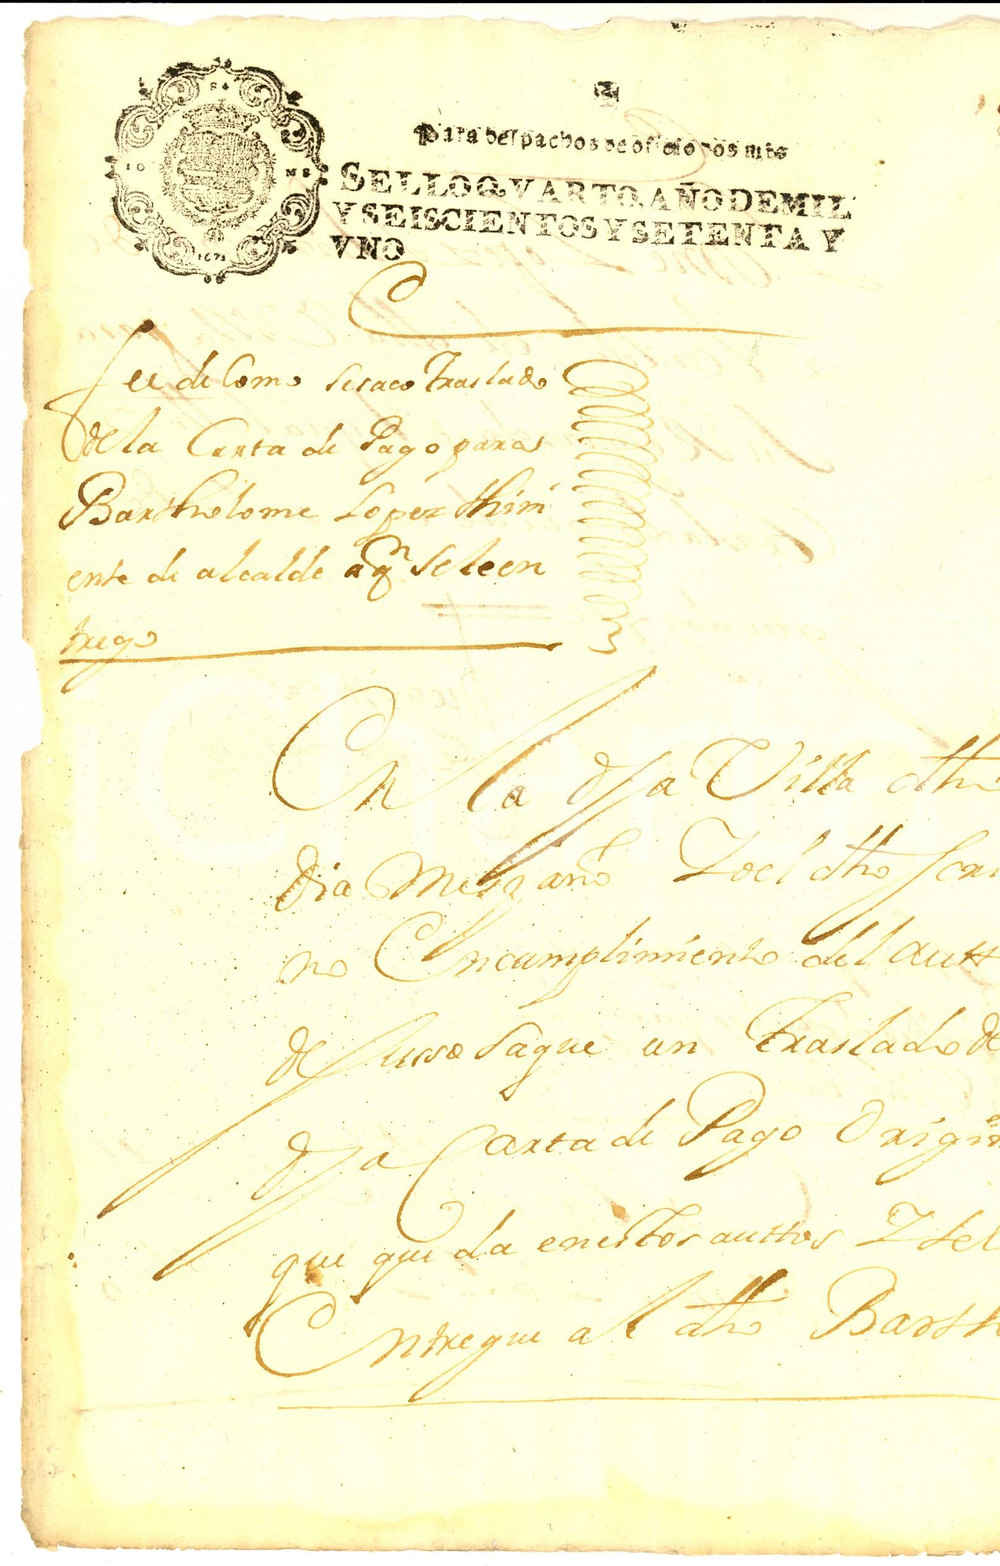 ✠
Para despachos de oficio dos mrs
SELLO QVARTO, AÑO DE MIL
Y SEISCIENTOS Y SETENTA Y
VNO
1671
fee de Como se saco Traslado
de la Carta de Pago para
Bartholome Lopez thini
ente de alcalde a qn se le en
trego
En la dja Villa dho
dia mes y año Yo el dho scri
no En cumplimiento del autto
de susso saque un Traslado de
dja Carta de Pago Origin
que queda en estos auttos Y le
Entregue al dho Barth